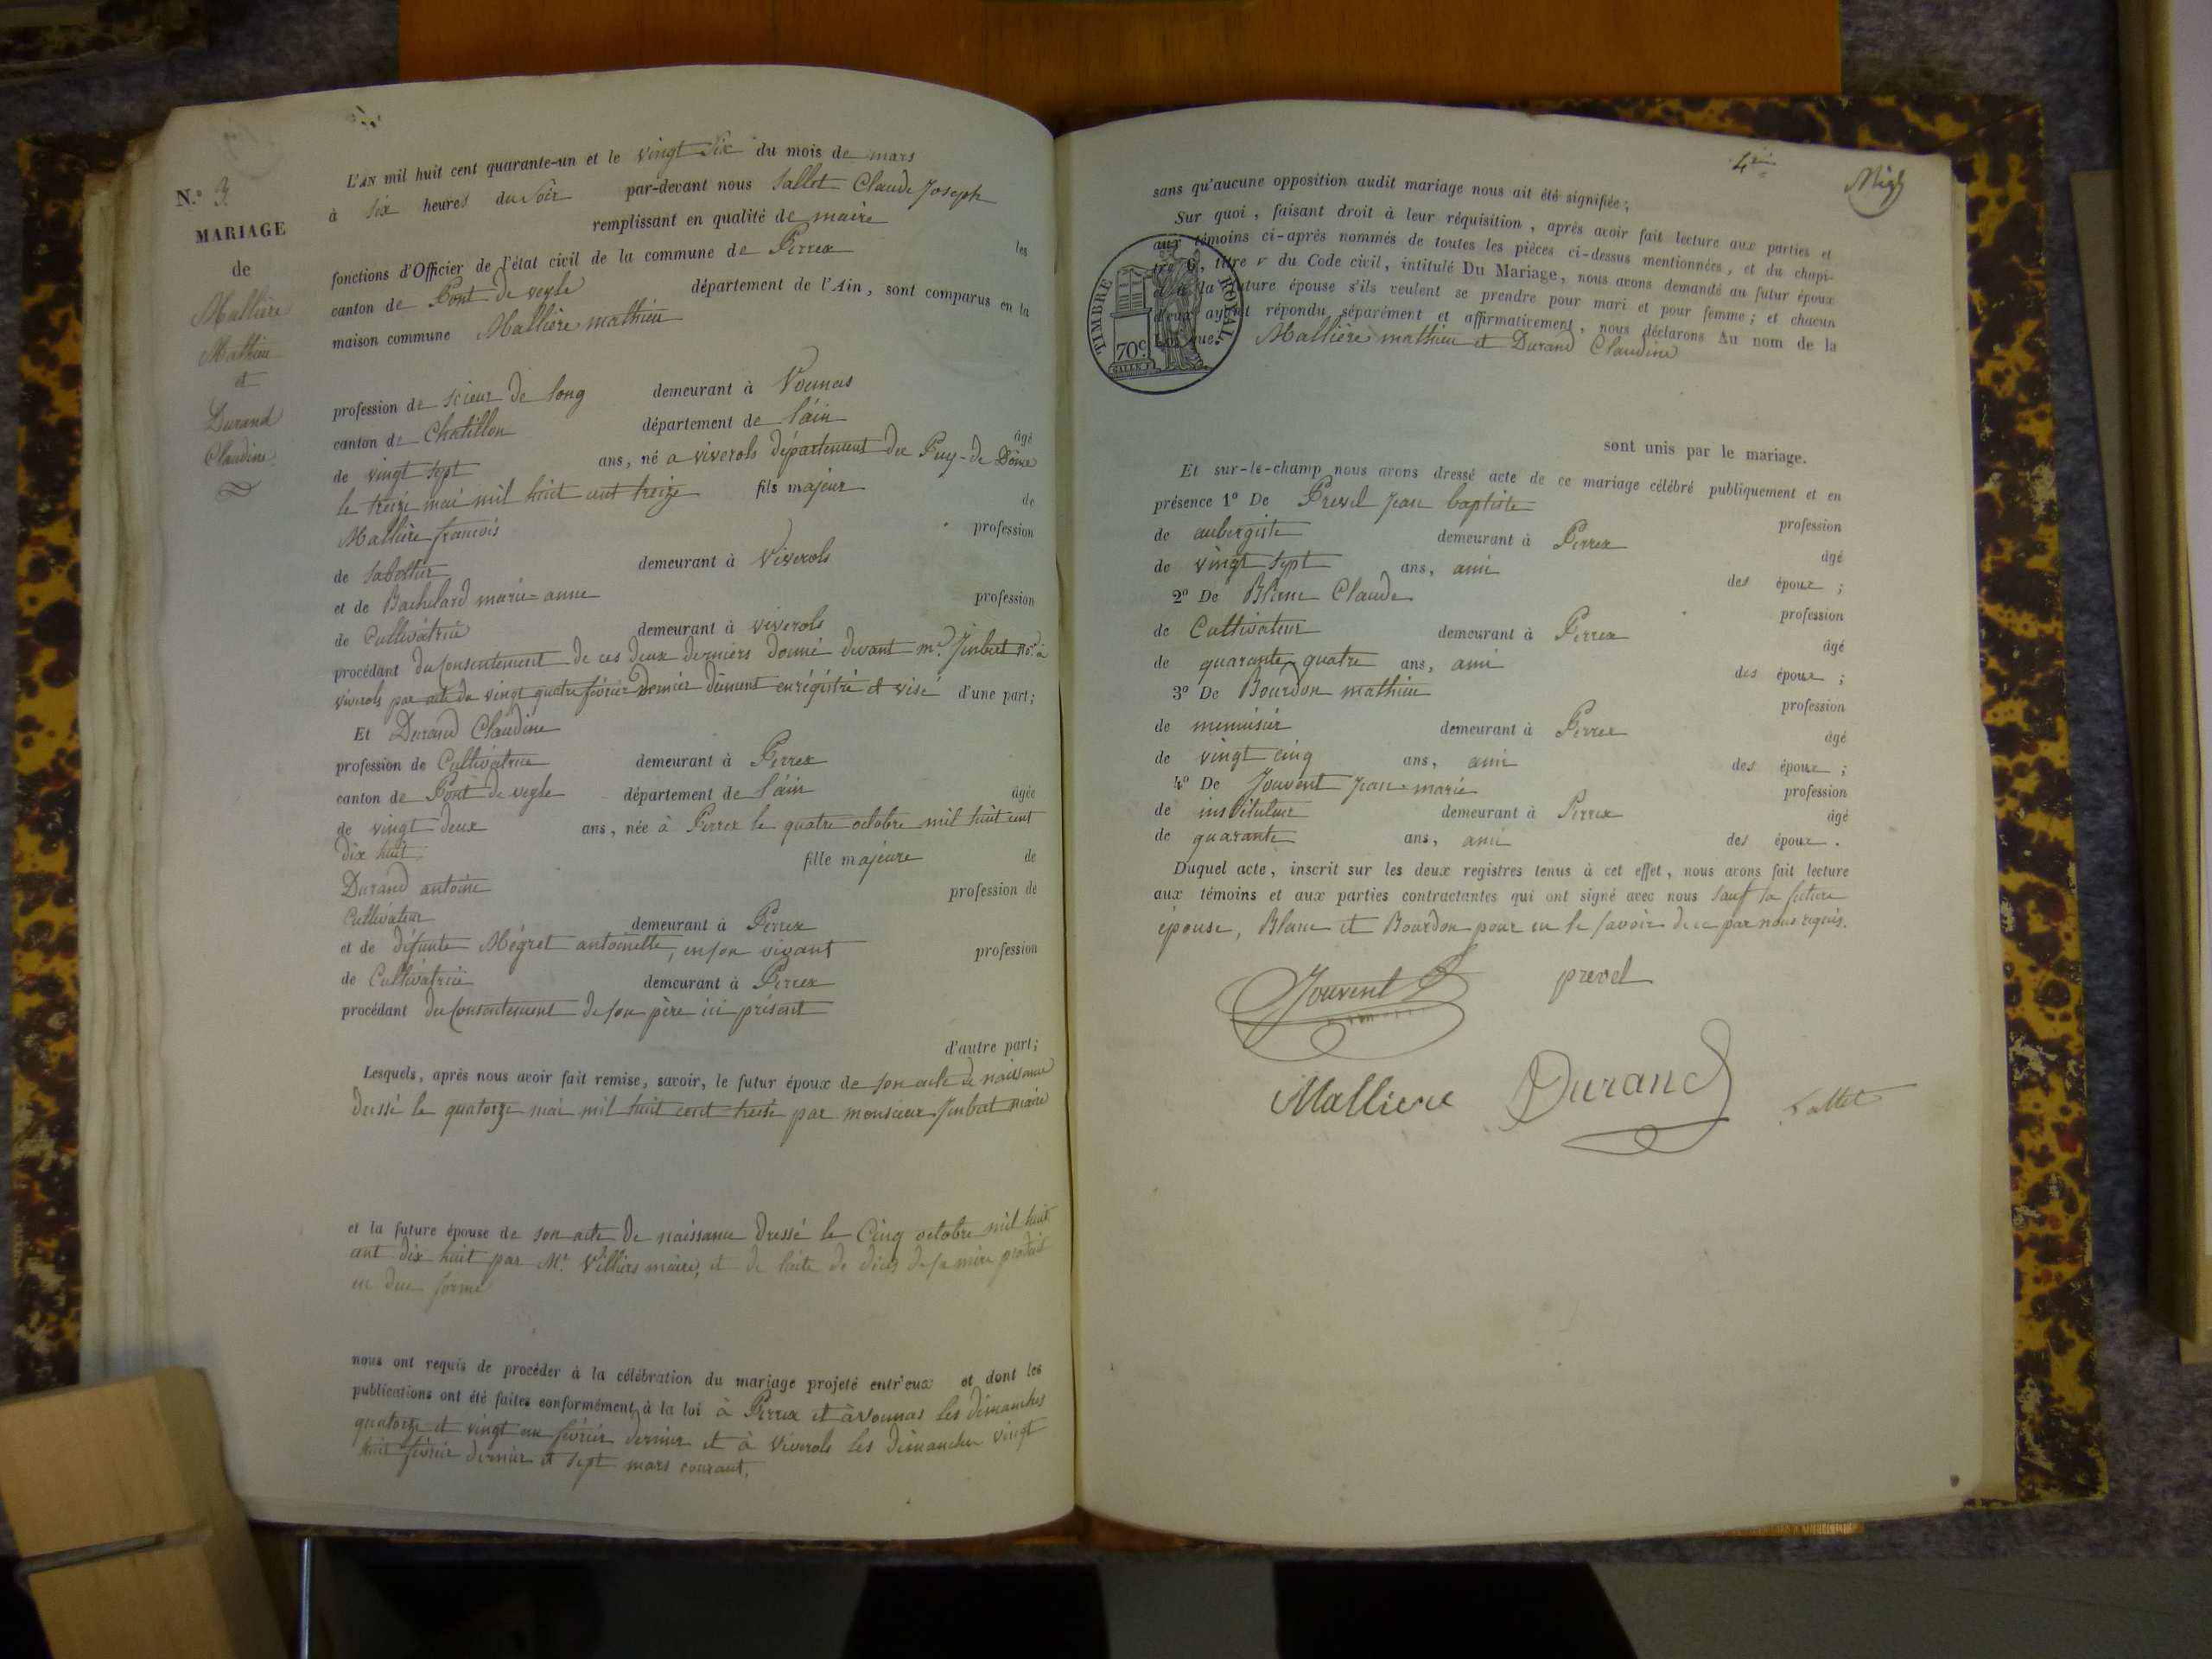 N.° 3.
MARIAGE
de
Mallière
Mathieu
et
Durand
Claudine
L'AN mil huit cent quarante-un et le vingt six du mois de mars
à six heures du soir par-devant nous Sallet Claude Joseph
remplissant en qualité de maire les
fonctions d'Officier de l'état civil de la commune de Perrex
canton de Pont de veyle département de l'Ain, sont comparus en la
maison commune Mallière mathieu
profession de scieur de long demeurant à Vounas
canton de Chatillon département de l'áin âgé
de vingt sept ans, né a viverols département du Puy-de Dôme
le treize mai mil huit cent treize fils majeur de
Mallière francois profession
de Sabottier demeurant à Viverols
et de Bachelard marie=anne profession
de Cultivatrice demeurant à viverols
procédant du Consentement de ces deux derniers donné devant me. Jmbert No.re à
viverols par acte du vingt quatre février dernier dûment enrégistré et visé d'une part;
Et Durand Claudine
profession de Cultivatrice demeurant à Perrex
canton de Pont de veyle département de l'áin âgée
de vingt deux ans, née à Perrex le quatre octobre mil huit cent
dix huit fille majeure de
Durand antoine profession de
Cultivateur demeurant à Perrex
et de défunte Mégret antoinette, en son vivant profession
de Cultivatrice demeurant à Perrex
procédant du Consentement de son père ici présent
d'autre part;
Lesquels, après nous avoir fait remise, savoir, le futur époux de son acte de naissance
dressé le quatorze mai mil huit cent treize par monsieur Jmbert maire
et la future épouse de son acte de naissance dressé le Cinq octobre mil huit
cent dix huit par Mr. Velliers maire, et de l'acte de décès de sa mère produit
en due forme
nous ont requis de procéder à la célébration du mariage projeté entr'eux et dont les
publications ont été faites conformément à la loi à Perrex et à Vounas les dimanches
quatorze et vingt un février dernier et à Viverols les dimanches vingt
huit février dernier et sept mars courant.
4
sans qu'aucune opposition audit mariage nous ait été signifiée;
Sur quoi, faisant droit à leur réquisition, après avoir fait lecture aux parties et
aux témoins ci-après nommés de toutes les pièces ci-dessus mentionnées, et du chapi-
tre 6, titre V du Code civil, intitulé Du Mariage, nous avons demandé au futur époux
et à la future épouse s'ils veulent se prendre pour mari et pour femme; et chacun
d'eux ayant répondu séparément et affirmativement, nous déclarons Au nom de la
Loi que Mallière mathieu et Durand Claudine
TIMBRE ROYAL
70c
sont unis par le mariage.
Et sur-le-champ nous avons dressé acte de ce mariage célébré publiquement et en
présence 1° De Prevel Jean baptiste profession
de aubergiste demeurant à Perrex âgé
de vingt sept ans, ami des époux;
2° De Blanc Claude profession
de Cultivateur demeurant à Perrex âgé
de quarante-quatre ans, ami des époux;
3° De Bourdon mathieu profession
de menuisier demeurant à Perrex âgé
de vingt cinq ans, ami des époux;
4° De Jouvent Jean-marie profession
de instituteur demeurant à Perrex âgé
de quarante ans, ami des époux.
Duquel acte, inscrit sur les deux registres tenus à cet effet, nous avons fait lecture
aux témoins et aux parties contractantes qui ont signé avec nous sauf la future
épouse, Blanc et Bourdon pour ne le savoir de ce par nous requis.
Jouvent prevel
Malliere Durand Sallet